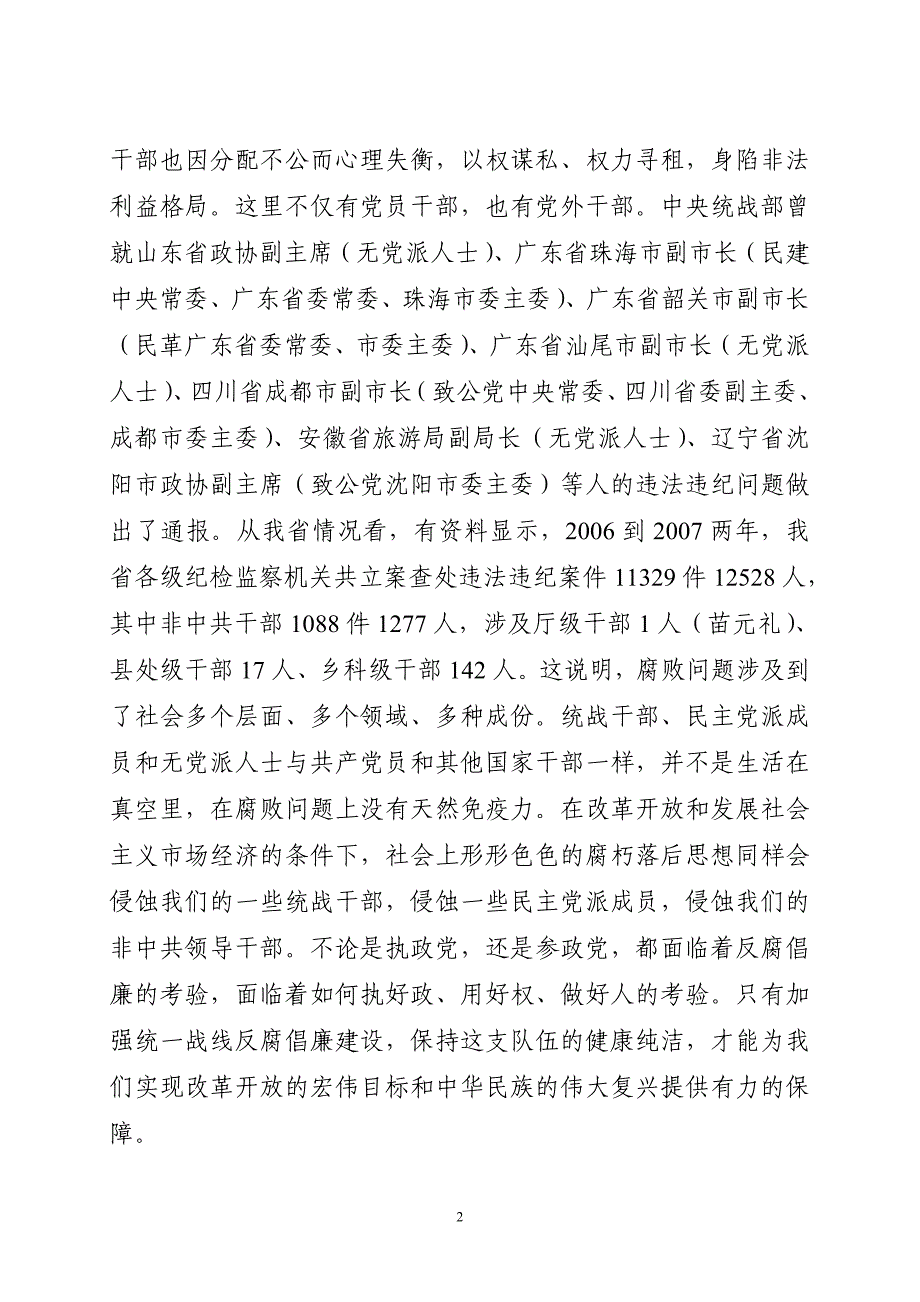 干部也因分配不公而心理失衡，以权谋私、权力寻租，身陷非法
利益格局。这里不仅有党员干部，也有党外干部。中央统战部曾
就山东省政协副主席（无党派人士）、广东省珠海市副市长（民建
中央常委、广东省委常委、珠海市委主委）、广东省韶关市副市长
（民革广东省委常委、市委主委）、广东省汕尾市副市长（无党派
人士）、四川省成都市副市长（致公党中央常委、四川省委副主委、
成都市委主委）、安徽省旅游局副局长（无党派人士）、辽宁省沈
阳市政协副主席（致公党沈阳市委主委）等人的违法违纪问题做
出了通报。从我省情况看，有资料显示，2006 到 2007 两年，我
省各级纪检监察机关共立案查处违法违纪案件 11329 件 12528 人，
其中非中共干部 1088 件 1277 人，涉及厅级干部 1 人（苗元礼）、
县处级干部 17 人、乡科级干部 142 人。这说明，腐败问题涉及到
了社会多个层面、多个领域、多种成份。统战干部、民主党派成
员和无党派人士与共产党员和其他国家干部一样，并不是生活在
真空里，在腐败问题上没有天然免疫力。在改革开放和发展社会
主义市场经济的条件下，社会上形形色色的腐朽落后思想同样会
侵蚀我们的一些统战干部，侵蚀一些民主党派成员，侵蚀我们的
非中共领导干部。不论是执政党，还是参政党，都面临着反腐倡
廉的考验，面临着如何执好政、用好权、做好人的考验。只有加
强统一战线反腐倡廉建设，保持这支队伍的健康纯洁，才能为我
们实现改革开放的宏伟目标和中华民族的伟大复兴提供有力的保
障。
2